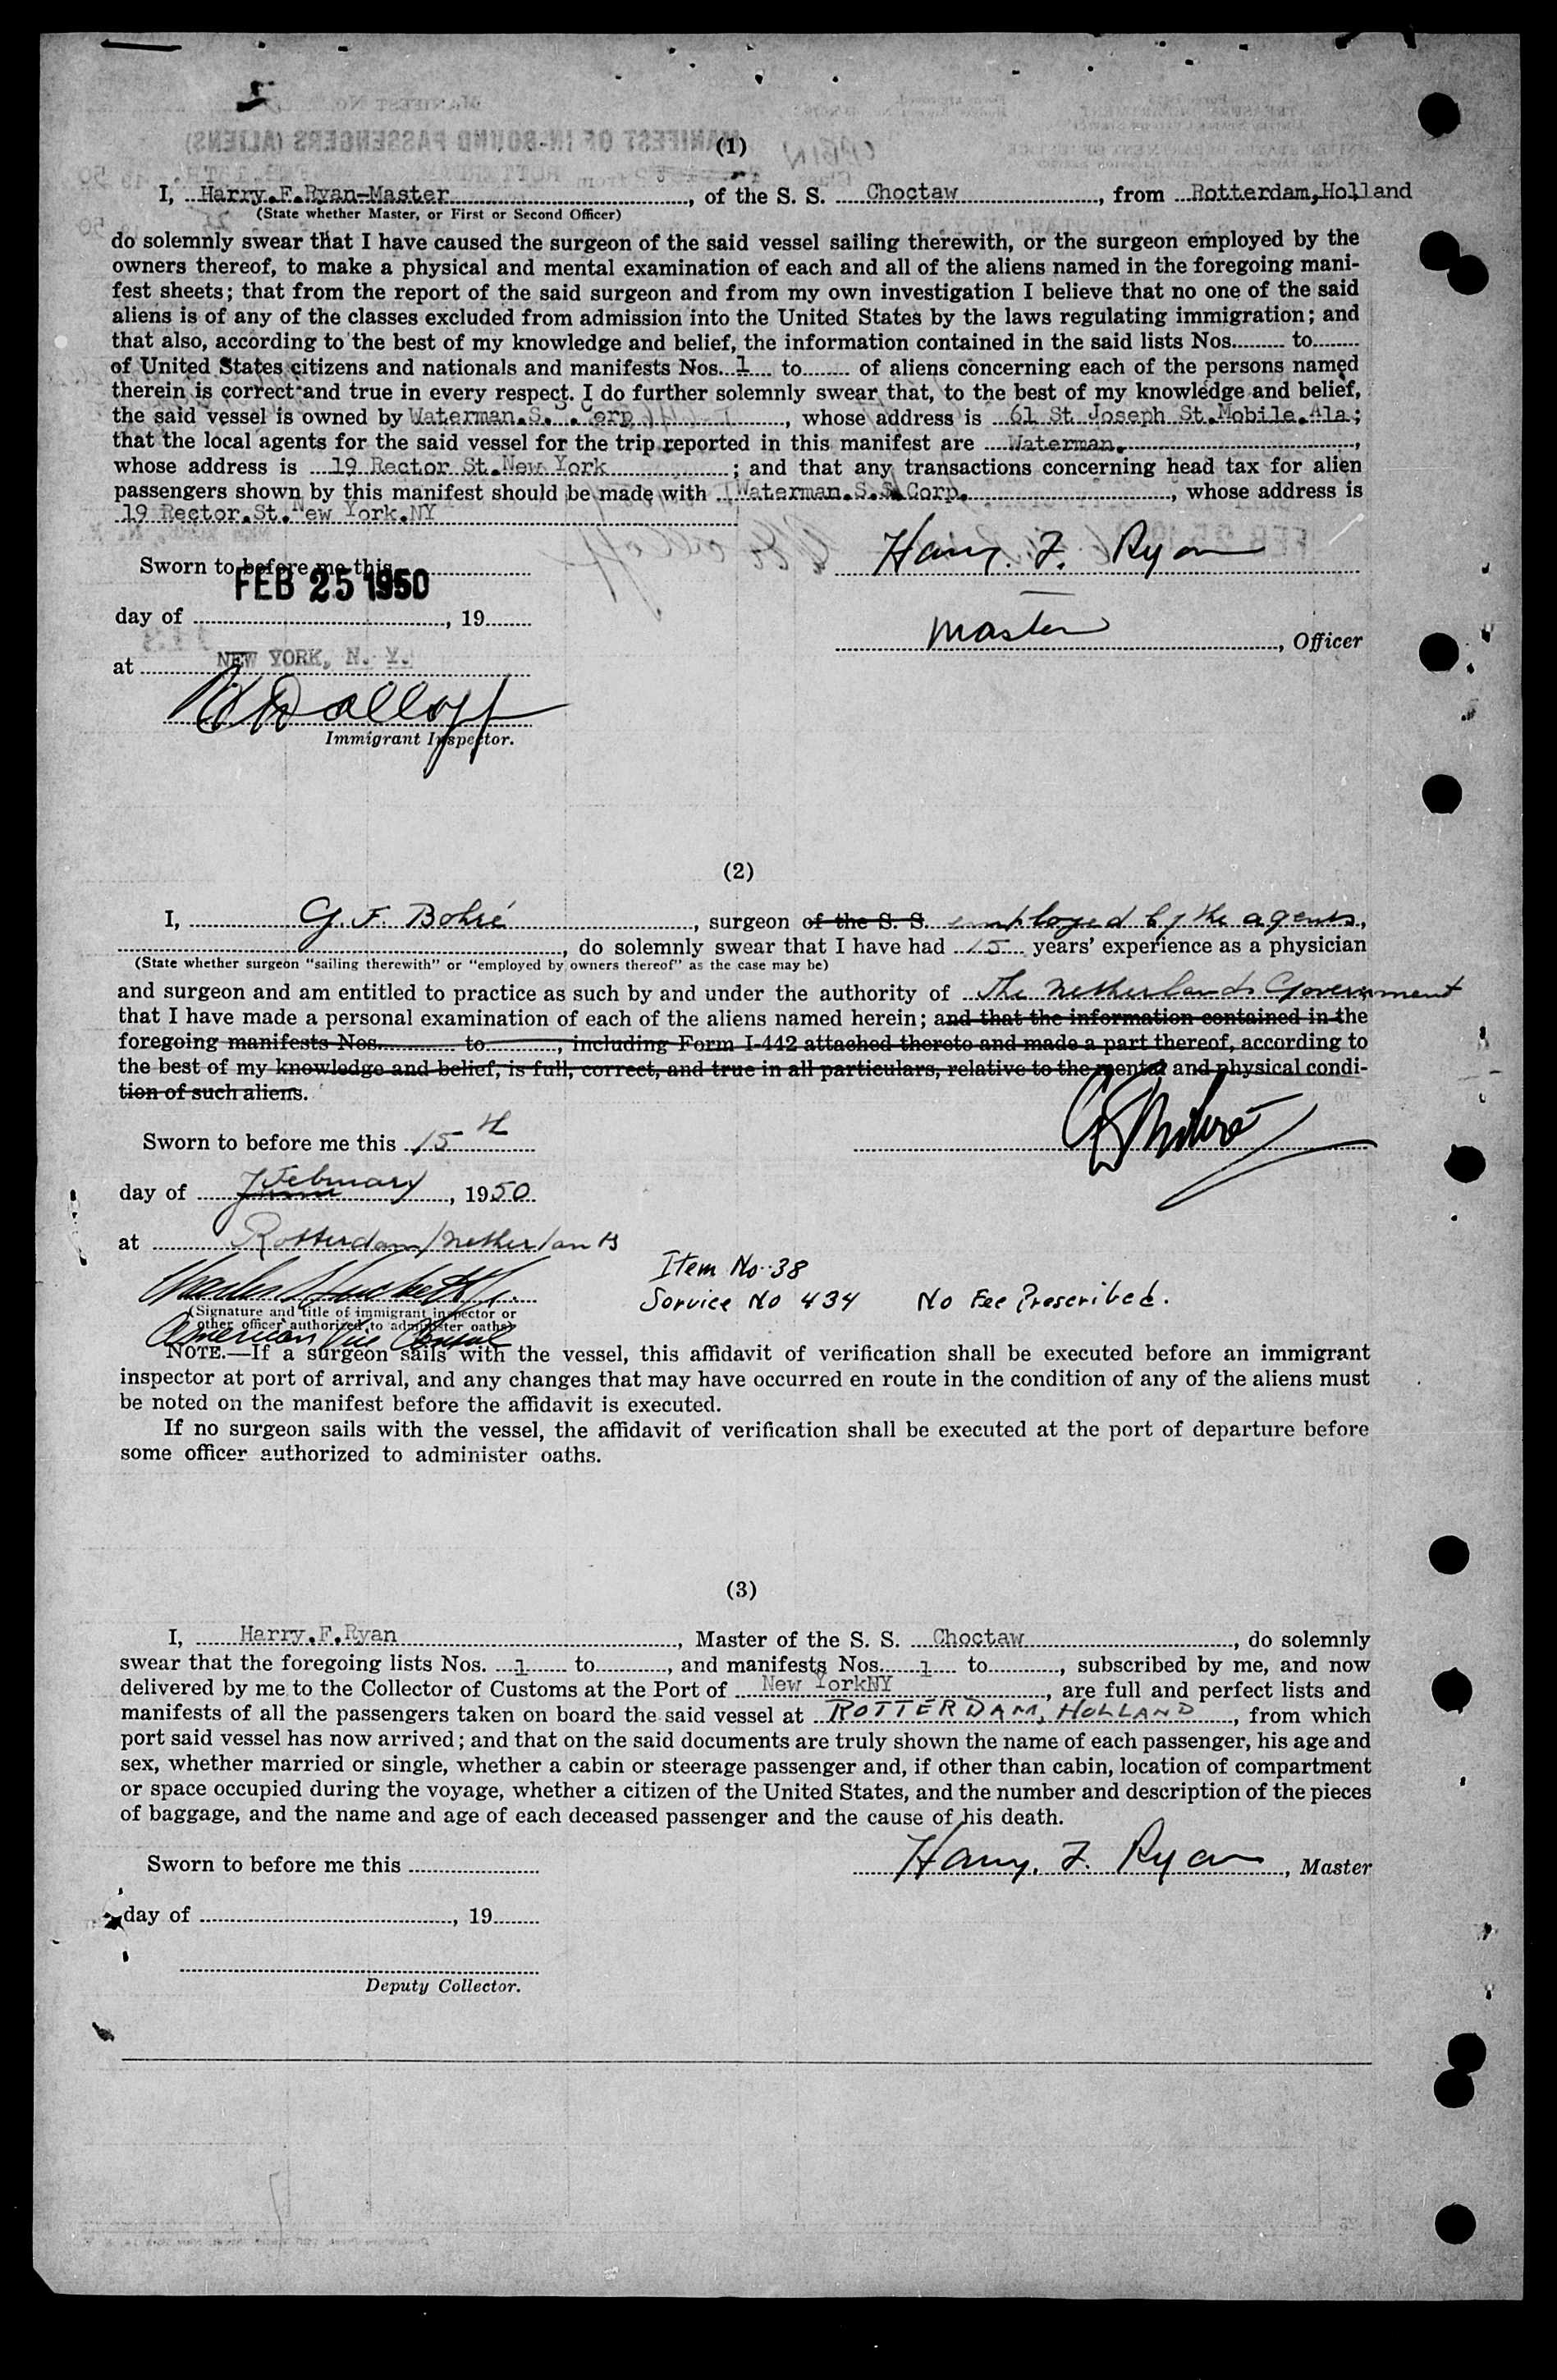 (1)
I, Harry.F.Ryan-Master, of the S. S. Choctaw, from Rotterdam,Holland
(State whether Master, or First or Second Officer)
do solemnly swear that I have caused the surgeon of the said vessel sailing therewith, or the surgeon employed by the
owners thereof, to make a physical and mental examination of each and all of the aliens named in the foregoing mani-
fest sheets; that from the report of the said surgeon and from my own investigation I believe that no one of the said
aliens is of any of the classes excluded from admission into the United States by the laws regulating immigration; and
that also, according to the best of my knowledge and belief, the information contained in the said lists Nos......... to........
of United States citizens and nationals and manifests Nos. 1 to........ of aliens concerning each of the persons named
therein is correct and true in every respect. I do further solemnly swear that, to the best of my knowledge and belief,
the said vessel is owned by Waterman.S.S.Corp, whose address is 61 St. Joseph St.Mobile.Ala;
that the local agents for the said vessel for the trip reported in this manifest are Waterman.,
whose address is 19 Rector St.New York; and that any transactions concerning head tax for alien
passengers shown by this manifest should be made with Waterman.S.S.Corp., whose address is
19 Rector.St.New York.NY
Harry. F. Ryan
Sworn to before me this
FEB 25 1950
day of ........, 19........
Master, Officer
at NEW YORK, N. Y.
Immigrant Inspector.
(2)
I, G. F. Bohré, surgeon of the S. S. employed by the agents,
, do solemnly swear that I have had 15 years' experience as a physician
(State whether surgeon "sailing therewith" or "employed by owners thereof" as the case may be)
and surgeon and am entitled to practice as such by and under the authority of The Netherlands Government
that I have made a personal examination of each of the aliens named herein; and that the information contained in the
foregoing manifests Nos............ to............, including Form I-442 attached thereto and made a part thereof, according to
the best of my knowledge and belief, is full, correct, and true in all particulars, relative to the mental and physical condi-
tion of such aliens.
Sworn to before me this 15th
day of February, 1950
at Rotterdam/Netherlands
Item No. 38
Service No 434 No Fee Prescribed.
(Signature and title of immigrant inspector or
other officer authorized to administer oaths)
American Vice Consul
NOTE.—If a surgeon sails with the vessel, this affidavit of verification shall be executed before an immigrant
inspector at port of arrival, and any changes that may have occurred en route in the condition of any of the aliens must
be noted on the manifest before the affidavit is executed.
If no surgeon sails with the vessel, the affidavit of verification shall be executed at the port of departure before
some officer authorized to administer oaths.
(3)
I, Harry.F.Ryan, Master of the S. S. Choctaw, do solemnly
swear that the foregoing lists Nos. 1 to............, and manifests Nos. 1 to............, subscribed by me, and now
delivered by me to the Collector of Customs at the Port of New YorkNY, are full and perfect lists and
manifests of all the passengers taken on board the said vessel at ROTTERDAM, HOLLAND, from which
port said vessel has now arrived; and that on the said documents are truly shown the name of each passenger, his age and
sex, whether married or single, whether a cabin or steerage passenger and, if other than cabin, location of compartment
or space occupied during the voyage, whether a citizen of the United States, and the number and description of the pieces
of baggage, and the name and age of each deceased passenger and the cause of his death.
Harry. F. Ryan, Master
Sworn to before me this
day of ........, 19........
Deputy Collector.